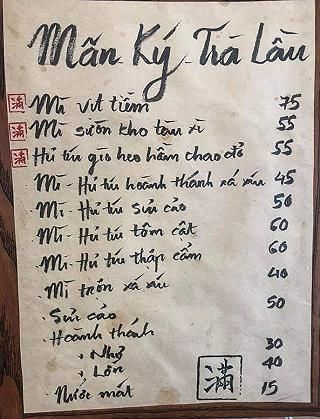 Mãn Ký Trà Lầu
滿 Mì vịt tiềm 75
滿 Mì sườn kho tàu xì 55
滿 Hủ tíu giò heo hầm chao đỏ 55
Mì - Hủ tíu hoành thánh xá xíu 45
Mì - Hủ tíu sủi cảo 50
Mì - Hủ tíu tôm cật 60
Mì - Hủ tíu thập cẩm 60
Mì trộn xá xíu 40
Sủi cảo 50
Hoành thánh
Nhỏ 30
Lớn 40
Nước mát 15
滿